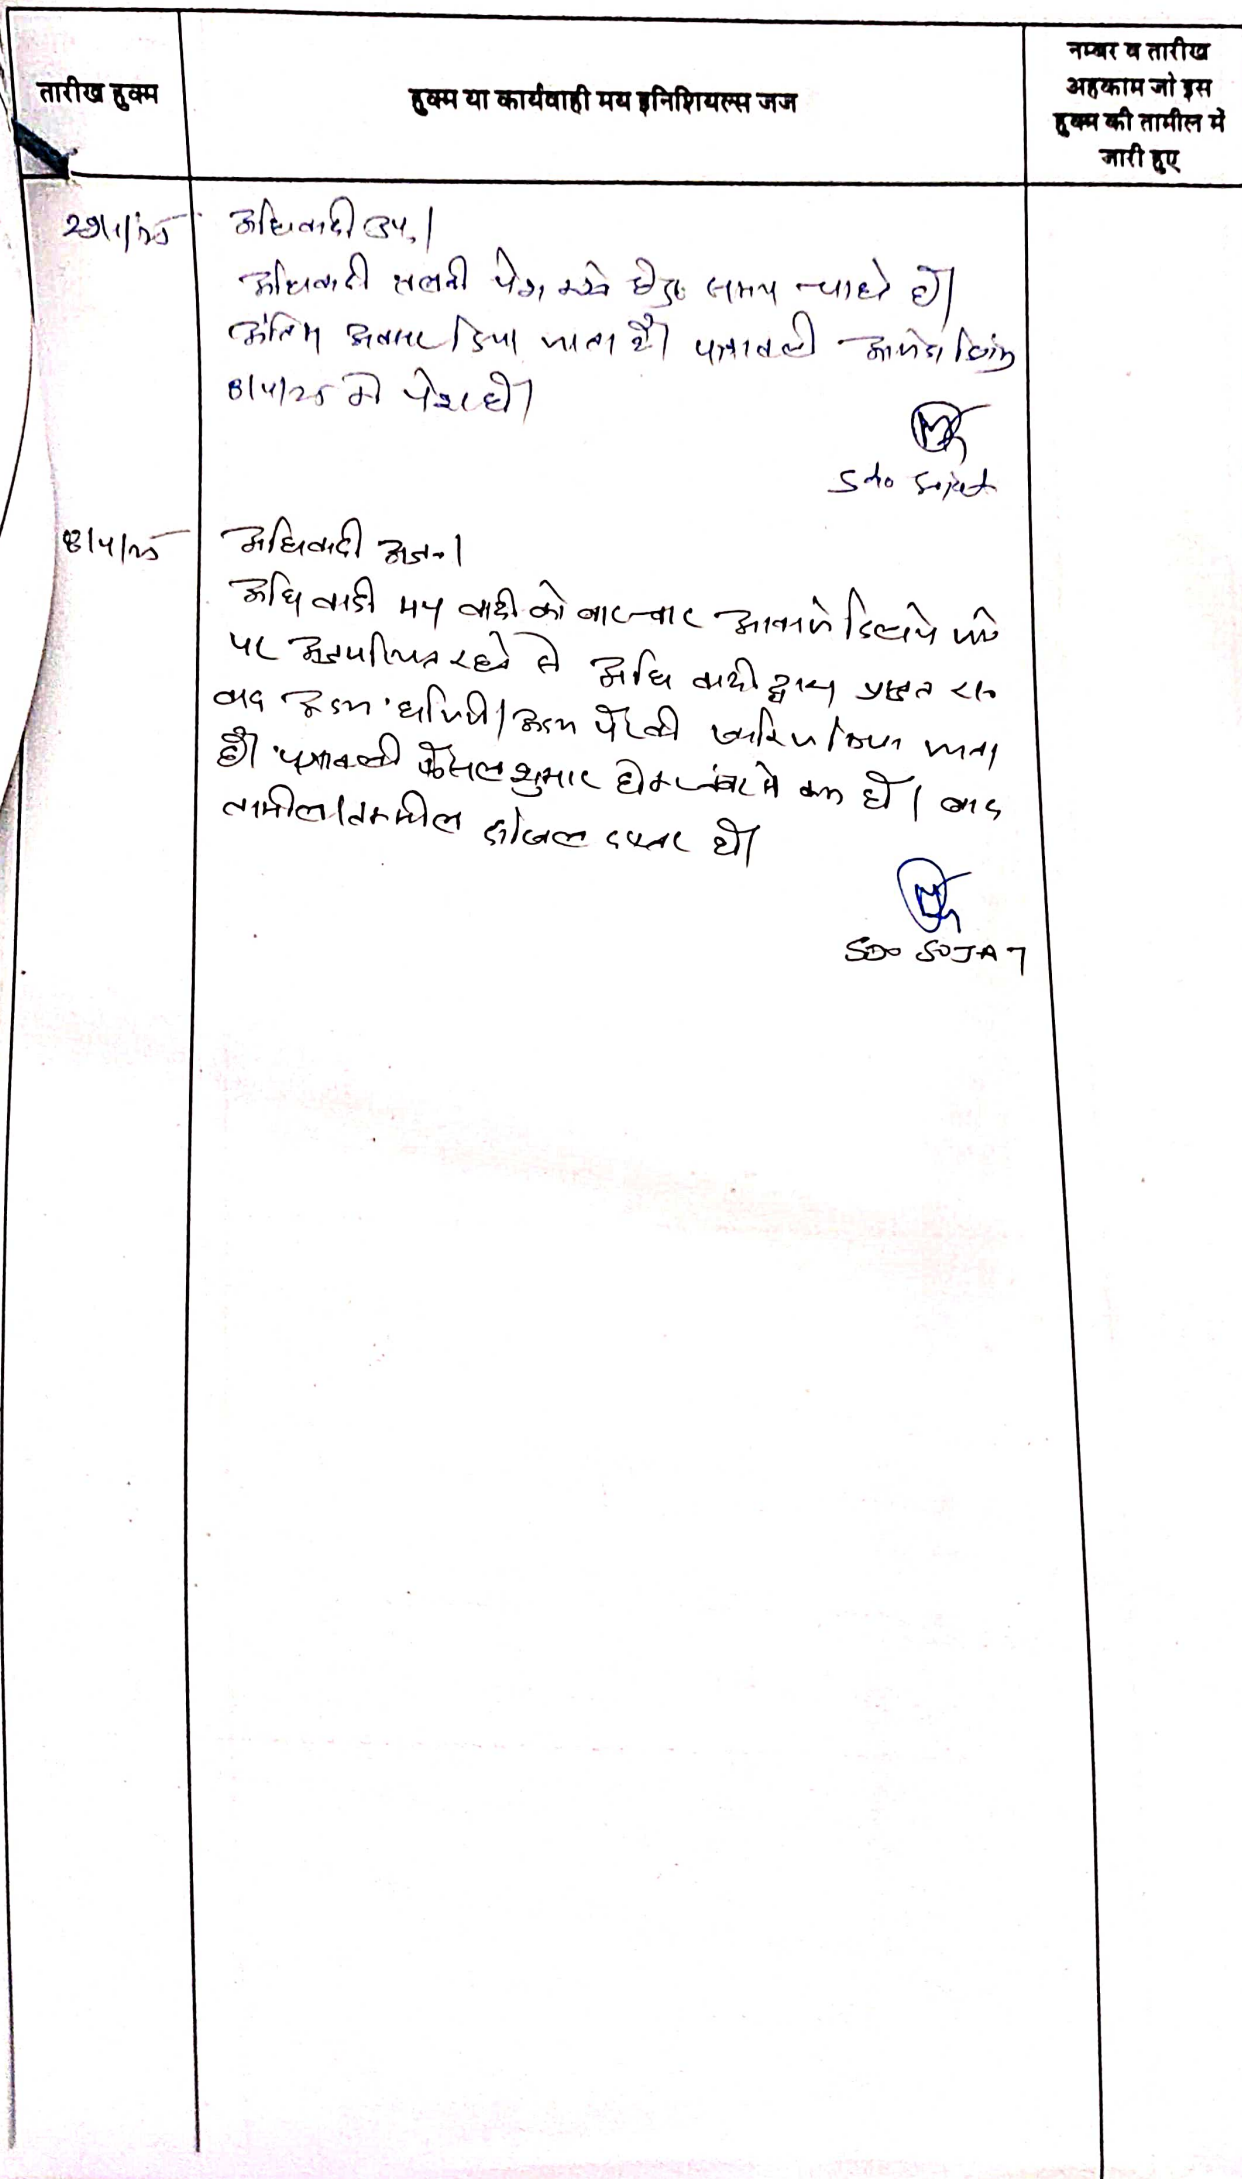 तारीख हुक्म
हुक्म या कार्यवाही मय इनिशियल्स जज
नम्बर व तारीख
अहकाम जो इस
हुक्म की तामील में
जारी हुए
अधिवादी उप.।
अधिवादी तलबी पेश करने हेतु समय चाहते है।
अंतिम अवसर दिया जाता है। पत्रावली आगामी
8/4/25 को पेश हो।
SDO Sojat
8/4/25 अधिवादी अनु.।
अधिवादी मय वादी को बार-बार आवाजे दिलाये जाने
पर अनुपस्थित रहने से अधिवादी द्वारा प्रस्तुत
वाद अदम हाजिरी/अदम पैरवी खारिज किया जाता
है। पत्रावली फैसल शुमार होकर नंबर से कम हो। बाद
तामील/तकमील दाखिल दफ्तर हो।
SDO SOJAT